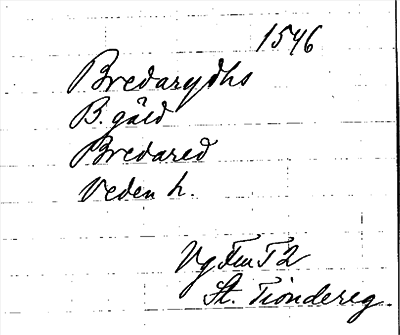 1546
Bredarydhs
B. gäld
Bredared
Veden h.
Vg Fm T 2
St. Tiondereg.